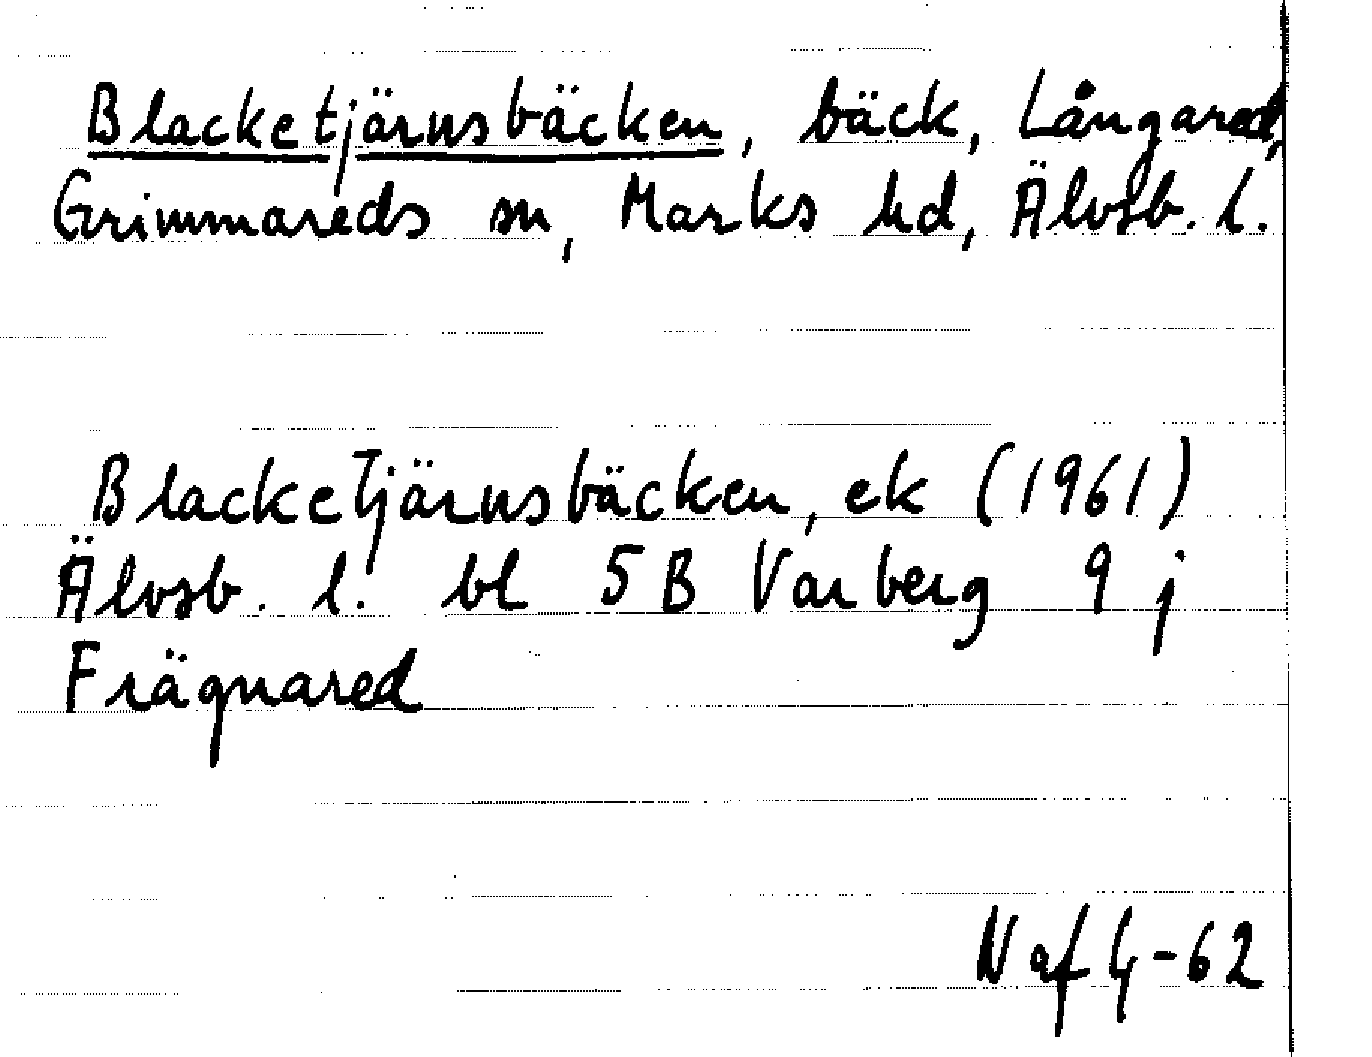 Blacketjärnsbäcken, bäck, Långared,
Grimmareds sn, Marks hd, Älvsb. l.
Blacketjärnsbäcken, ek (1961)
Älvsb. l. bl 5B Varberg 9 j
Frägnared
N af G-62